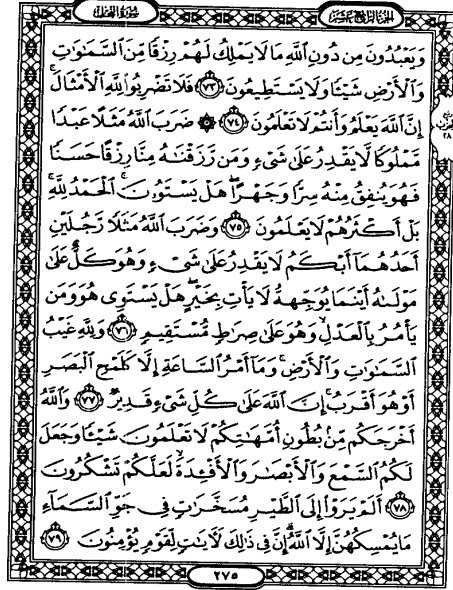 الجزء الرابع عشر
سورة النحل
وَيَعْبُدُونَ مِن دُونِ ٱللَّهِ مَا لَا يَمْلِكُ لَهُمْ رِزْقًا مِّنَ ٱلسَّمَٰوَٰتِ
وَٱلْأَرْضِ شَيْـًٔا وَلَا يَسْتَطِيعُونَ ﴿٧٣﴾ فَلَا تَضْرِبُوا۟ لِلَّهِ ٱلْأَمْثَالَ ۚ
إِنَّ ٱللَّهَ يَعْلَمُ وَأَنتُمْ لَا تَعْلَمُونَ ﴿٧٤﴾ ۞ ضَرَبَ ٱللَّهُ مَثَلًا عَبْدًا
مَّمْلُوكًا لَّا يَقْدِرُ عَلَىٰ شَىْءٍ وَمَن رَّزَقْنَٰهُ مِنَّا رِزْقًا حَسَنًا
فَهُوَ يُنفِقُ مِنْهُ سِرًّا وَجَهْرًا ۖ هَلْ يَسْتَوُۥنَ ۚ ٱلْحَمْدُ لِلَّهِ ۚ
بَلْ أَكْثَرُهُمْ لَا يَعْلَمُونَ ﴿٧٥﴾ وَضَرَبَ ٱللَّهُ مَثَلًا رَّجُلَيْنِ
أَحَدُهُمَآ أَبْكَمُ لَا يَقْدِرُ عَلَىٰ شَىْءٍ وَهُوَ كَلٌّ عَلَىٰ
مَوْلَىٰهُ أَيْنَمَا يُوَجِّههُّ لَا يَأْتِ بِخَيْرٍ ۖ هَلْ يَسْتَوِى هُوَ وَمَن
يَأْمُرُ بِٱلْعَدْلِ ۙ وَهُوَ عَلَىٰ صِرَٰطٍ مُّسْتَقِيمٍ ﴿٧٦﴾ وَلِلَّهِ غَيْبُ
ٱلسَّمَٰوَٰتِ وَٱلْأَرْضِ ۚ وَمَآ أَمْرُ ٱلسَّاعَةِ إِلَّا كَلَمْحِ ٱلْبَصَرِ
أَوْ هُوَ أَقْرَبُ ۚ إِنَّ ٱللَّهَ عَلَىٰ كُلِّ شَىْءٍ قَدِيرٌ ﴿٧٧﴾ وَٱللَّهُ
أَخْرَجَكُم مِّنۢ بُطُونِ أُمَّهَٰتِكُمْ لَا تَعْلَمُونَ شَيْـًٔا وَجَعَلَ
لَكُمُ ٱلسَّمْعَ وَٱلْأَبْصَٰرَ وَٱلْأَفْـِٔدَةَ ۙ لَعَلَّكُمْ تَشْكُرُونَ
﴿٧٨﴾ أَلَمْ يَرَوْا۟ إِلَى ٱلطَّيْرِ مُسَخَّرَٰتٍ فِى جَوِّ ٱلسَّمَآءِ
مَا يُمْسِكُهُنَّ إِلَّا ٱللَّهُ ۗ إِنَّ فِى ذَٰلِكَ لَءَايَٰتٍ لِّقَوْمٍ يُؤْمِنُونَ ﴿٧٩﴾
٢٧٥